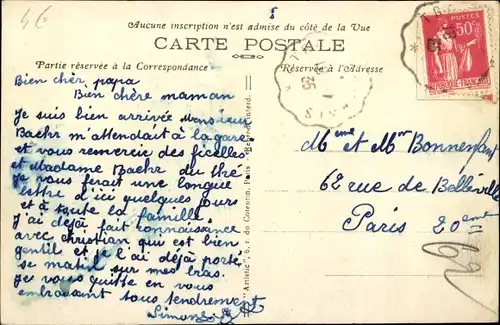 4€
5
Aucune inscription n'est admise du côté de la Vue
CARTE POSTALE
Partie réservée à la Correspondance
Réservée à l'Adresse
POSTES
50c
REPUBLIQUE FRANÇAISE
35
Bien cher papa
Bien chère maman
Je suis bien arrivée Monsieur
Baehr m'attendait à la gare
et vous remercie des ficelles
et Madame Baehr du thé
Je vous ferait une longue
lettre d'ici quelques jours
et à toute la famille
J'ai déjà fait connaissance
avec christian qui est bien
gentil et je l'ai déjà porté
se matin sur mes bras.
Je vous quitte en vous
embrassant tous tendrement
Simone
"Artistic", 6, r. du Cotentin, Paris
Mme et Mr Bonnenfant
62 rue de Belleville
Paris 20ème
62